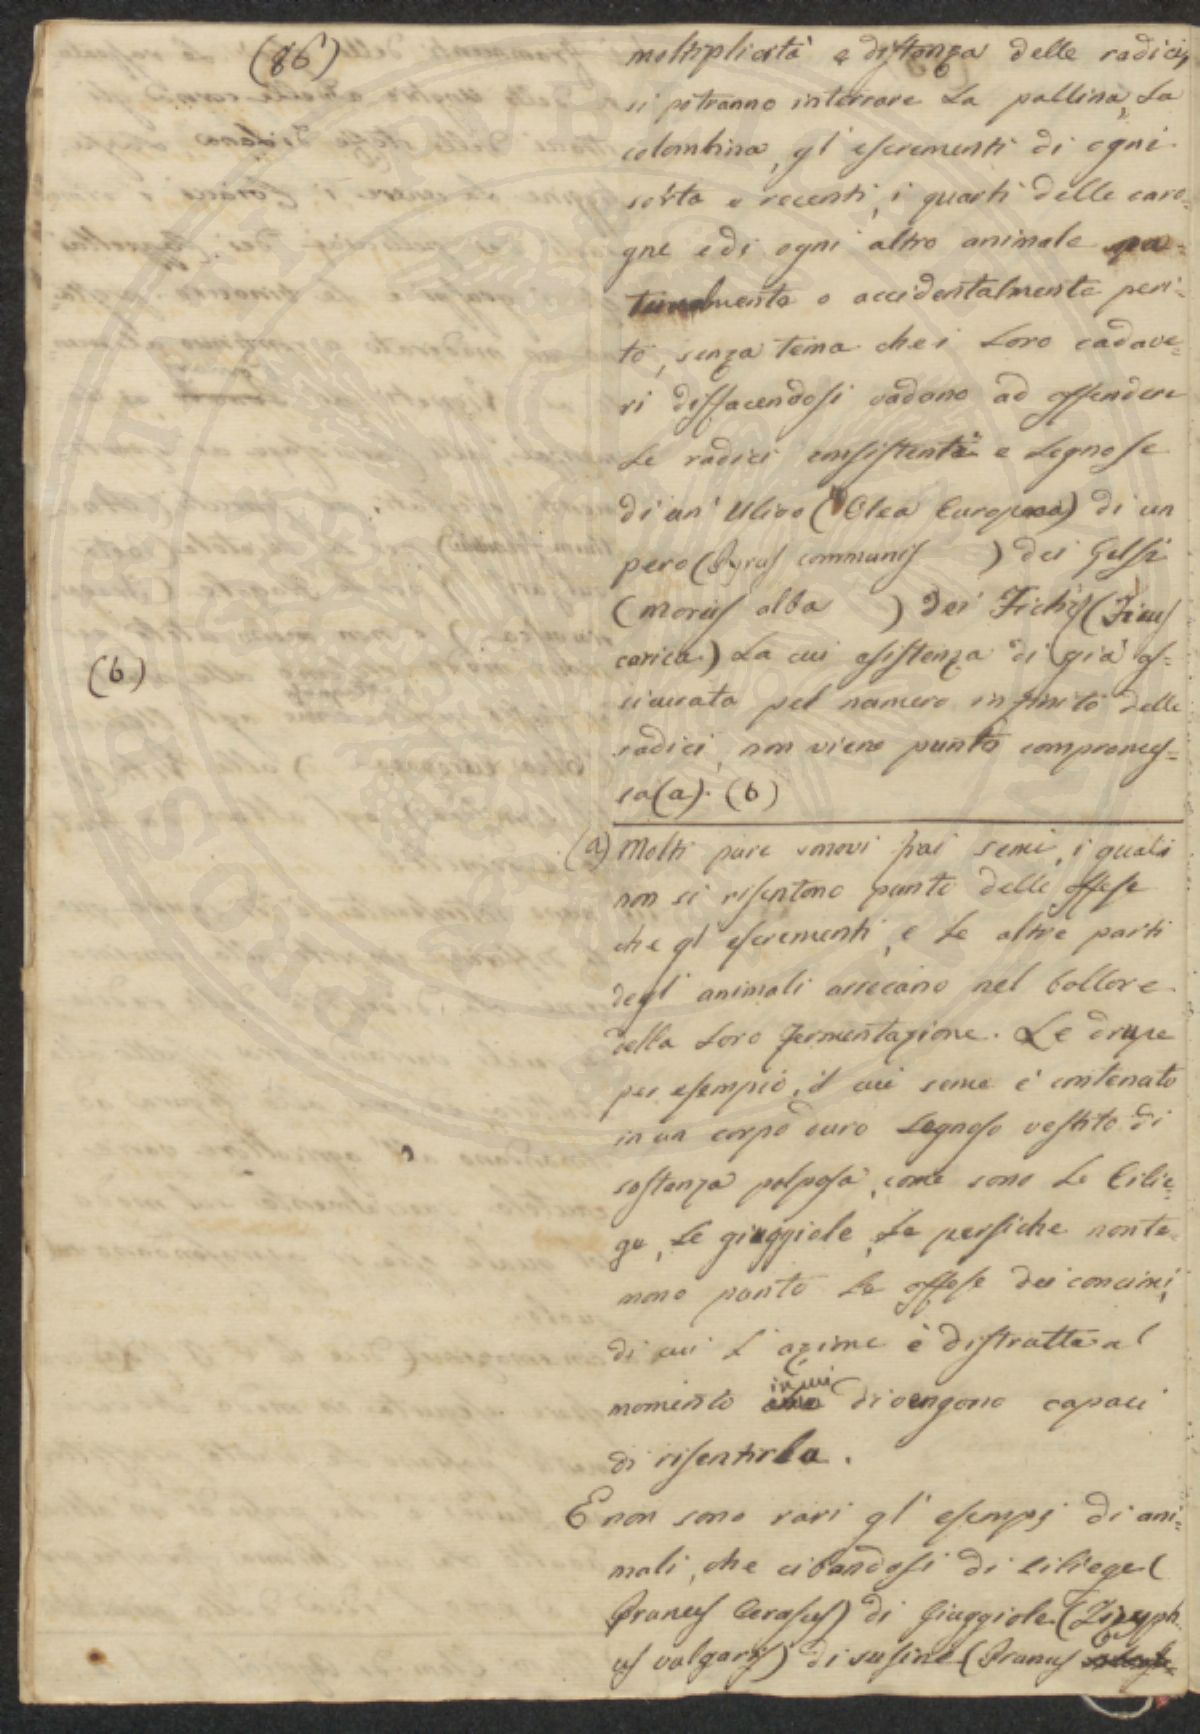 (86)
moltiplicità e distanza delle radici,
si potranno interrare la pollina, la
colombina, gl' escrementi di ogni
sorta e recenti, i quarti delle caro-
gne e di ogni altro animale na-
turalmente o accidentalmente peri-
to, senza tema che i loro cadave-
ri disfacendosi vadano ad offendere
le radici consistenti e legnose
di un' Ulivo (Olea Europaea) di un
pero (Pyrus communis ) dei Gelsi
(Morus alba ) dei Fichi (Ficus
carica) La cui esistenza di già as-
sicurata pel numero infinito delle
radici, non viene punto compromes-
sa (a). (b)
(b)
(a) Molti pure sonovi frai semi, i quali
non si risentono punto delle offese
che gl' escrementi, e le altre parti
degl' animali arrecano nel bollore
della loro fermentazione. Le drupe
per esempio, il cui seme è contenuto
in un corpo duro legnoso vestito di
sostanza polposa, come sono le Cilie-
ge, le giuggiole, le persiche non te-
mono punto le offese dei concimi,
di cui l' azione è distrutta al
momento in cui divengono capaci
di risentirla.
E non sono rari gl' esempj di ani-
mali, che cibandosi di ciliege (
Prunus Cerasus) di Giuggiole (Zizyph-
us vulgaris) di susine (Prunus